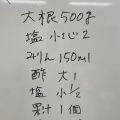 大根500g
塩 小さじ2
みりん150ml
酢 大1
塩 小1/2
果汁1個